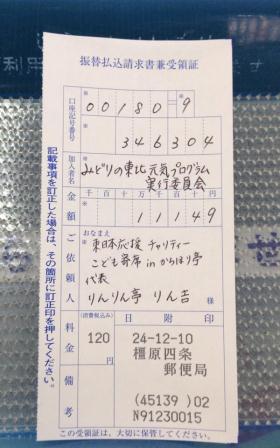 振替払込請求書兼受領証
口座記号番号
00180 9
346304
加入者名
みどりの東北元気プログラム
実行委員会
金額
千 百 十 万 千 百 十 円
11149
ご依頼人
おなまえ
東日本応援チャリティー
こども寄席inからほり亭
代表
りんりん亭 りん吉
様
料金
(消費税込み)
120
円
日附印
24-12-10
橿原四条
郵便局
(45139)02
N91230015
備考
記載事項を訂正した場合は、その箇所に訂正印を押してください。
この受領証は、大切に保管してください。